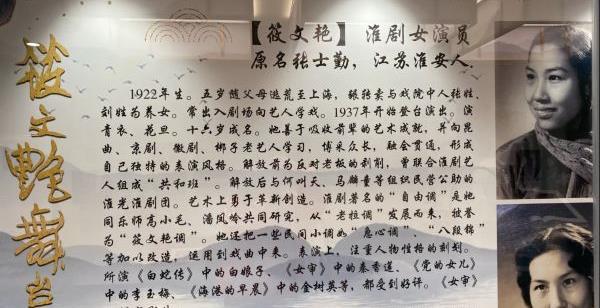 筱文艳舞台
【筱文艳】 淮剧女演员
原名张士勤，江苏淮安人。
1922年生。五岁随父母逃荒至上海，辗转卖与戏院中人张姓、
刘姓为养女。常出入剧场向艺人学戏。1937年开始登台演出。演
青衣、花旦。十六岁成名。她善于吸收前辈的艺术成就，并向昆
曲、京剧、徽剧、梆子老艺人学习，博采众长，融会贯通，形成
自己独特的表演风格。解放前为反对老板的剥削，曾联合淮剧艺
人组成“共和班”。解放后与何叫天、马麟童等组织民营公助的
淮光淮剧团。艺术上勇于革新创造。淮剧著名的“自由调”是她
同乐师高小毛、潘凤岭共同研究，从“老拉调”发展而来，被誉
为“筱文艳调”。她还把一些民间小调如“悬心调”、“八段锦”
等加以改造，运用到戏曲中来。表演上，注重人物性格的刻划。
所演《白蛇传》中的白娘子、《女审》中的秦香莲、《党的女儿》
中的李玉梅、《海港的早晨》中的金树英等，都受到好评。《女审》